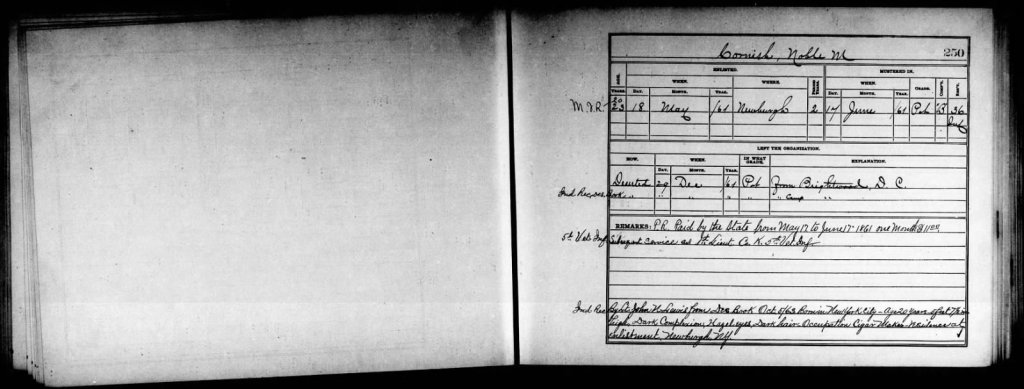 Cornish, Noble M
250
AGE. ENLISTED. MUSTERED IN.
YEARS. WHEN. WHERE. PERIOD YEARS. WHEN. GRADE. COMP'Y. REG'T.
DAY. MONTH. YEAR. DAY. MONTH. YEAR.
M.I.R. 20 23 18 May /61 Newburgh 2 17 June /61 Pvt B 36
Inf
LEFT THE ORGANIZATION.
HOW. WHEN. IN WHAT GRADE. EXPLANATION.
DAY. MONTH. YEAR.
Deserted 29 Dec /61 Pvt from Brightwood, D. C.
Ind Rec, Des. Book " " " " " " Camp "
REMARKS: P.R. Paid by the State from May 17 to June 17 1861 one Month $11 00
5th Vet Inf Subsequent service as 1st Lieut Co K. 5th Vet Inf
Ind Rec By Lt. John from Des Book Oct 6/63 Born in New York City - Age 20 years
high. Dark Complexion, Hazel eyes, Dark hair. Occupation Cigar Maker. Residence at
enlistment, Newburgh, NY.